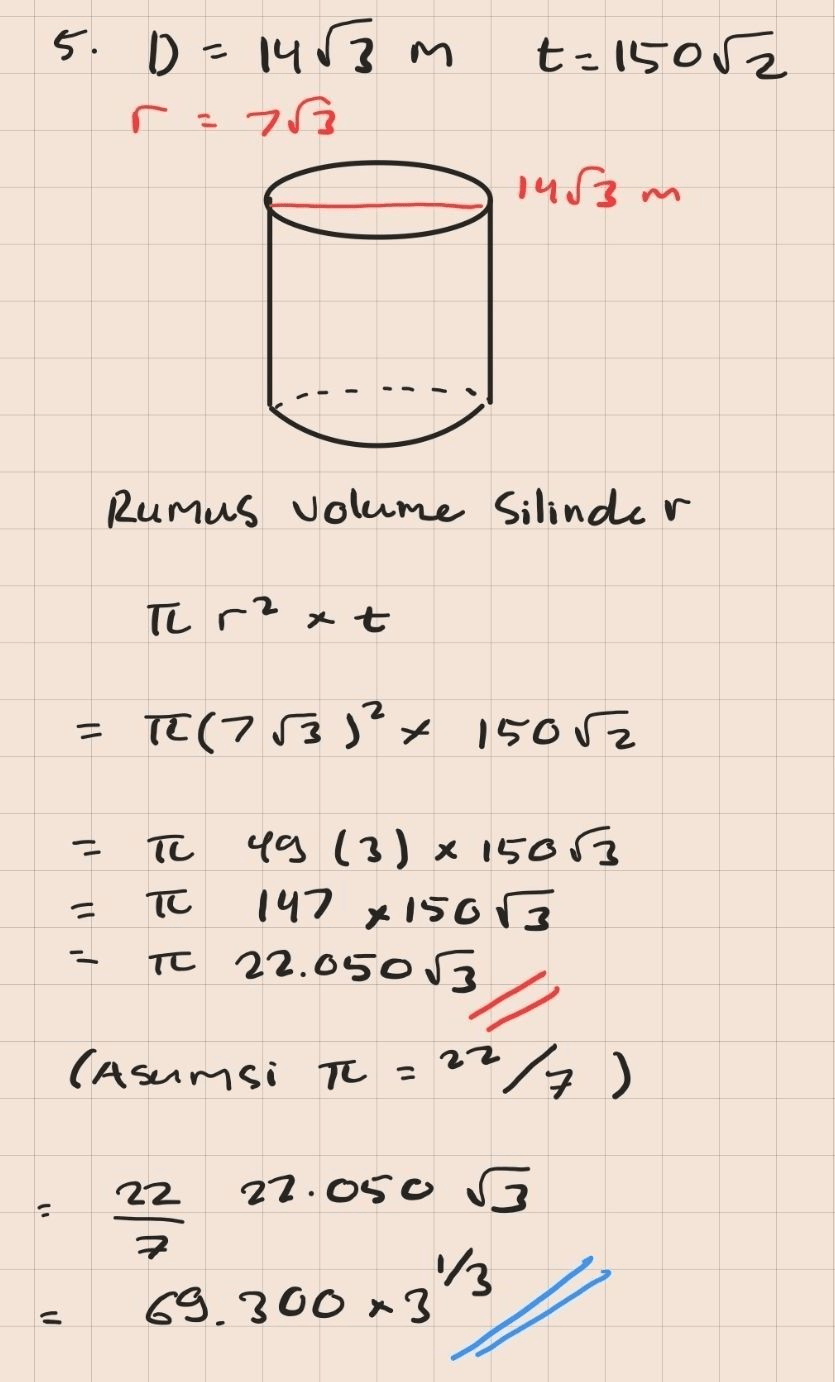 5. D = 14√3 m t = 150√2
r = 7√3
14√3 m
Rumus volume Silinder
π r² × t
= π(7√3)² × 150√2
= π 49 (3) × 150√3
= π 147 × 150√3
= π 22.050√3
(Asumsi π = 22/7 )
= 22/7 22.050 √3
= 69.300 × 3^1/3